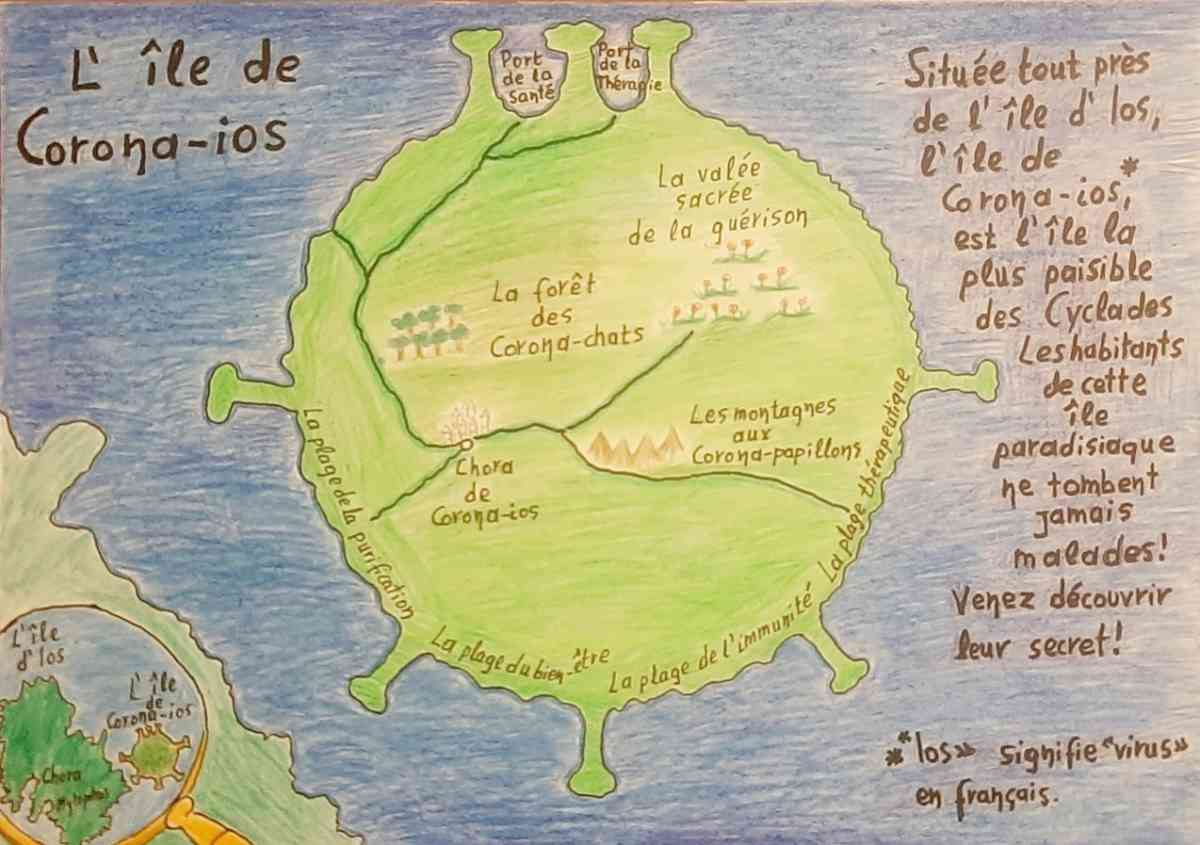 L' île de
Corona-ios
Port
de la
santé
Port
de la
Thérapie
La valée
sacrée
de la guérison
La forêt
des
Corona-chats
Les montagnes
aux
Corona-papillons
Chora
de
Corona-ios
La plage de la purification
La plage du bien-être
La plage de l'immunité
La plage thérapeutique
Située tout près
de l'île d' Ios,
l'île de
Corona-ios,*
est l'île la
plus paisible
des Cyclades
Les habitants
de cette
île
paradisiaque
ne tombent
jamais
malades!
Venez découvrir
leur secret!
* "ios» signifie "virus»
en français.
L'île
d' Ios
L'île
de
Corona-ios
Chora
Mylopotas